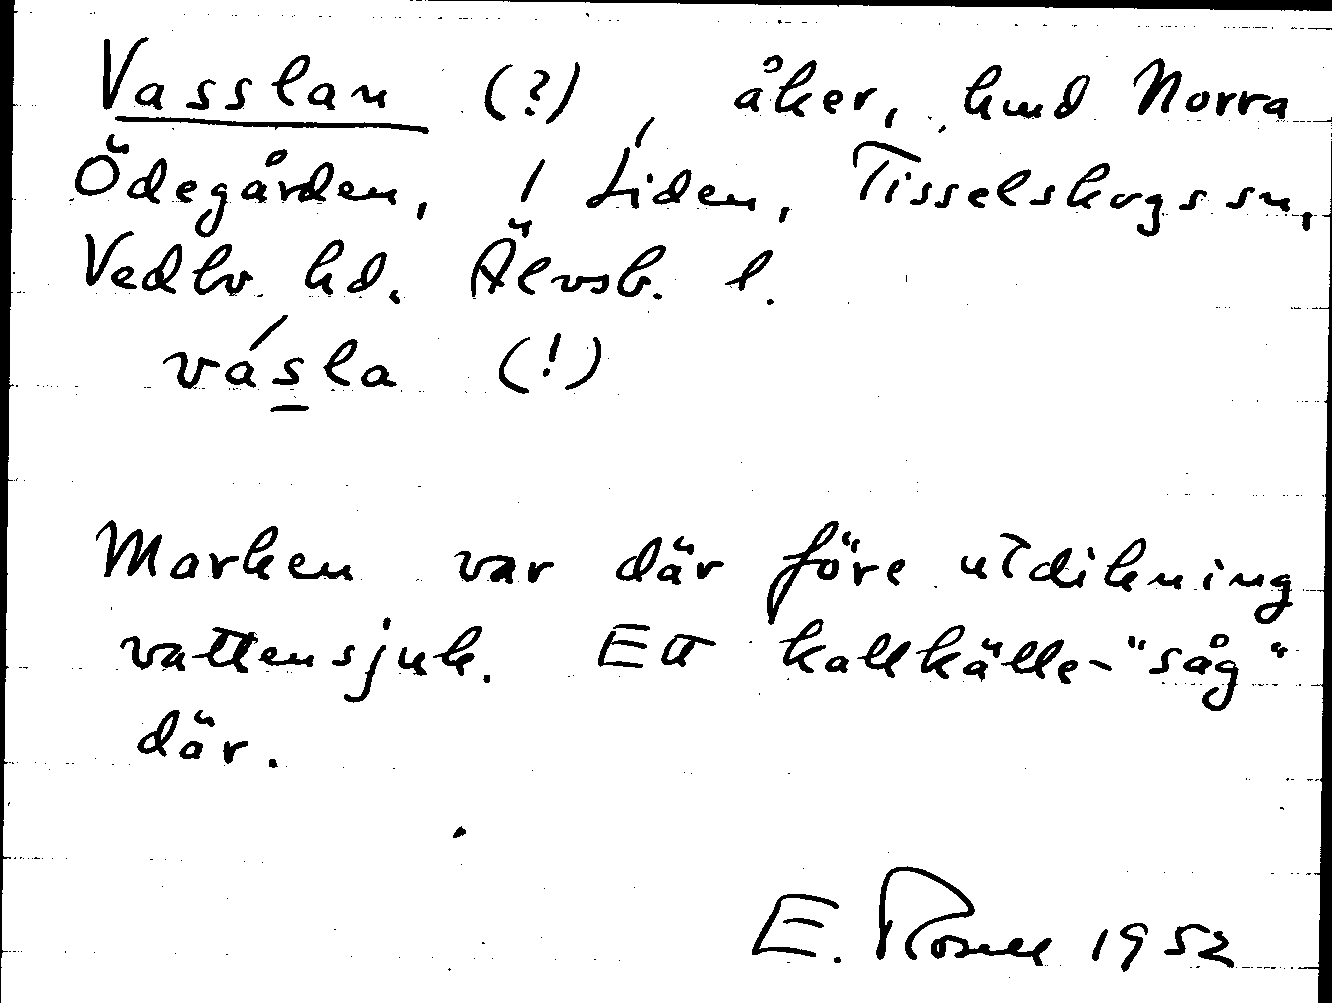 Vasslan (?), åker, hmd Norra
Ödegården, 1 Liden, Tisselskogs sn,
Vedbo hd. Älvsb. l.
vásla (!)
Marken var där före utdikning
vattensjuk. Ett kallkälle-"såg"
där.
E. Rosell 1952